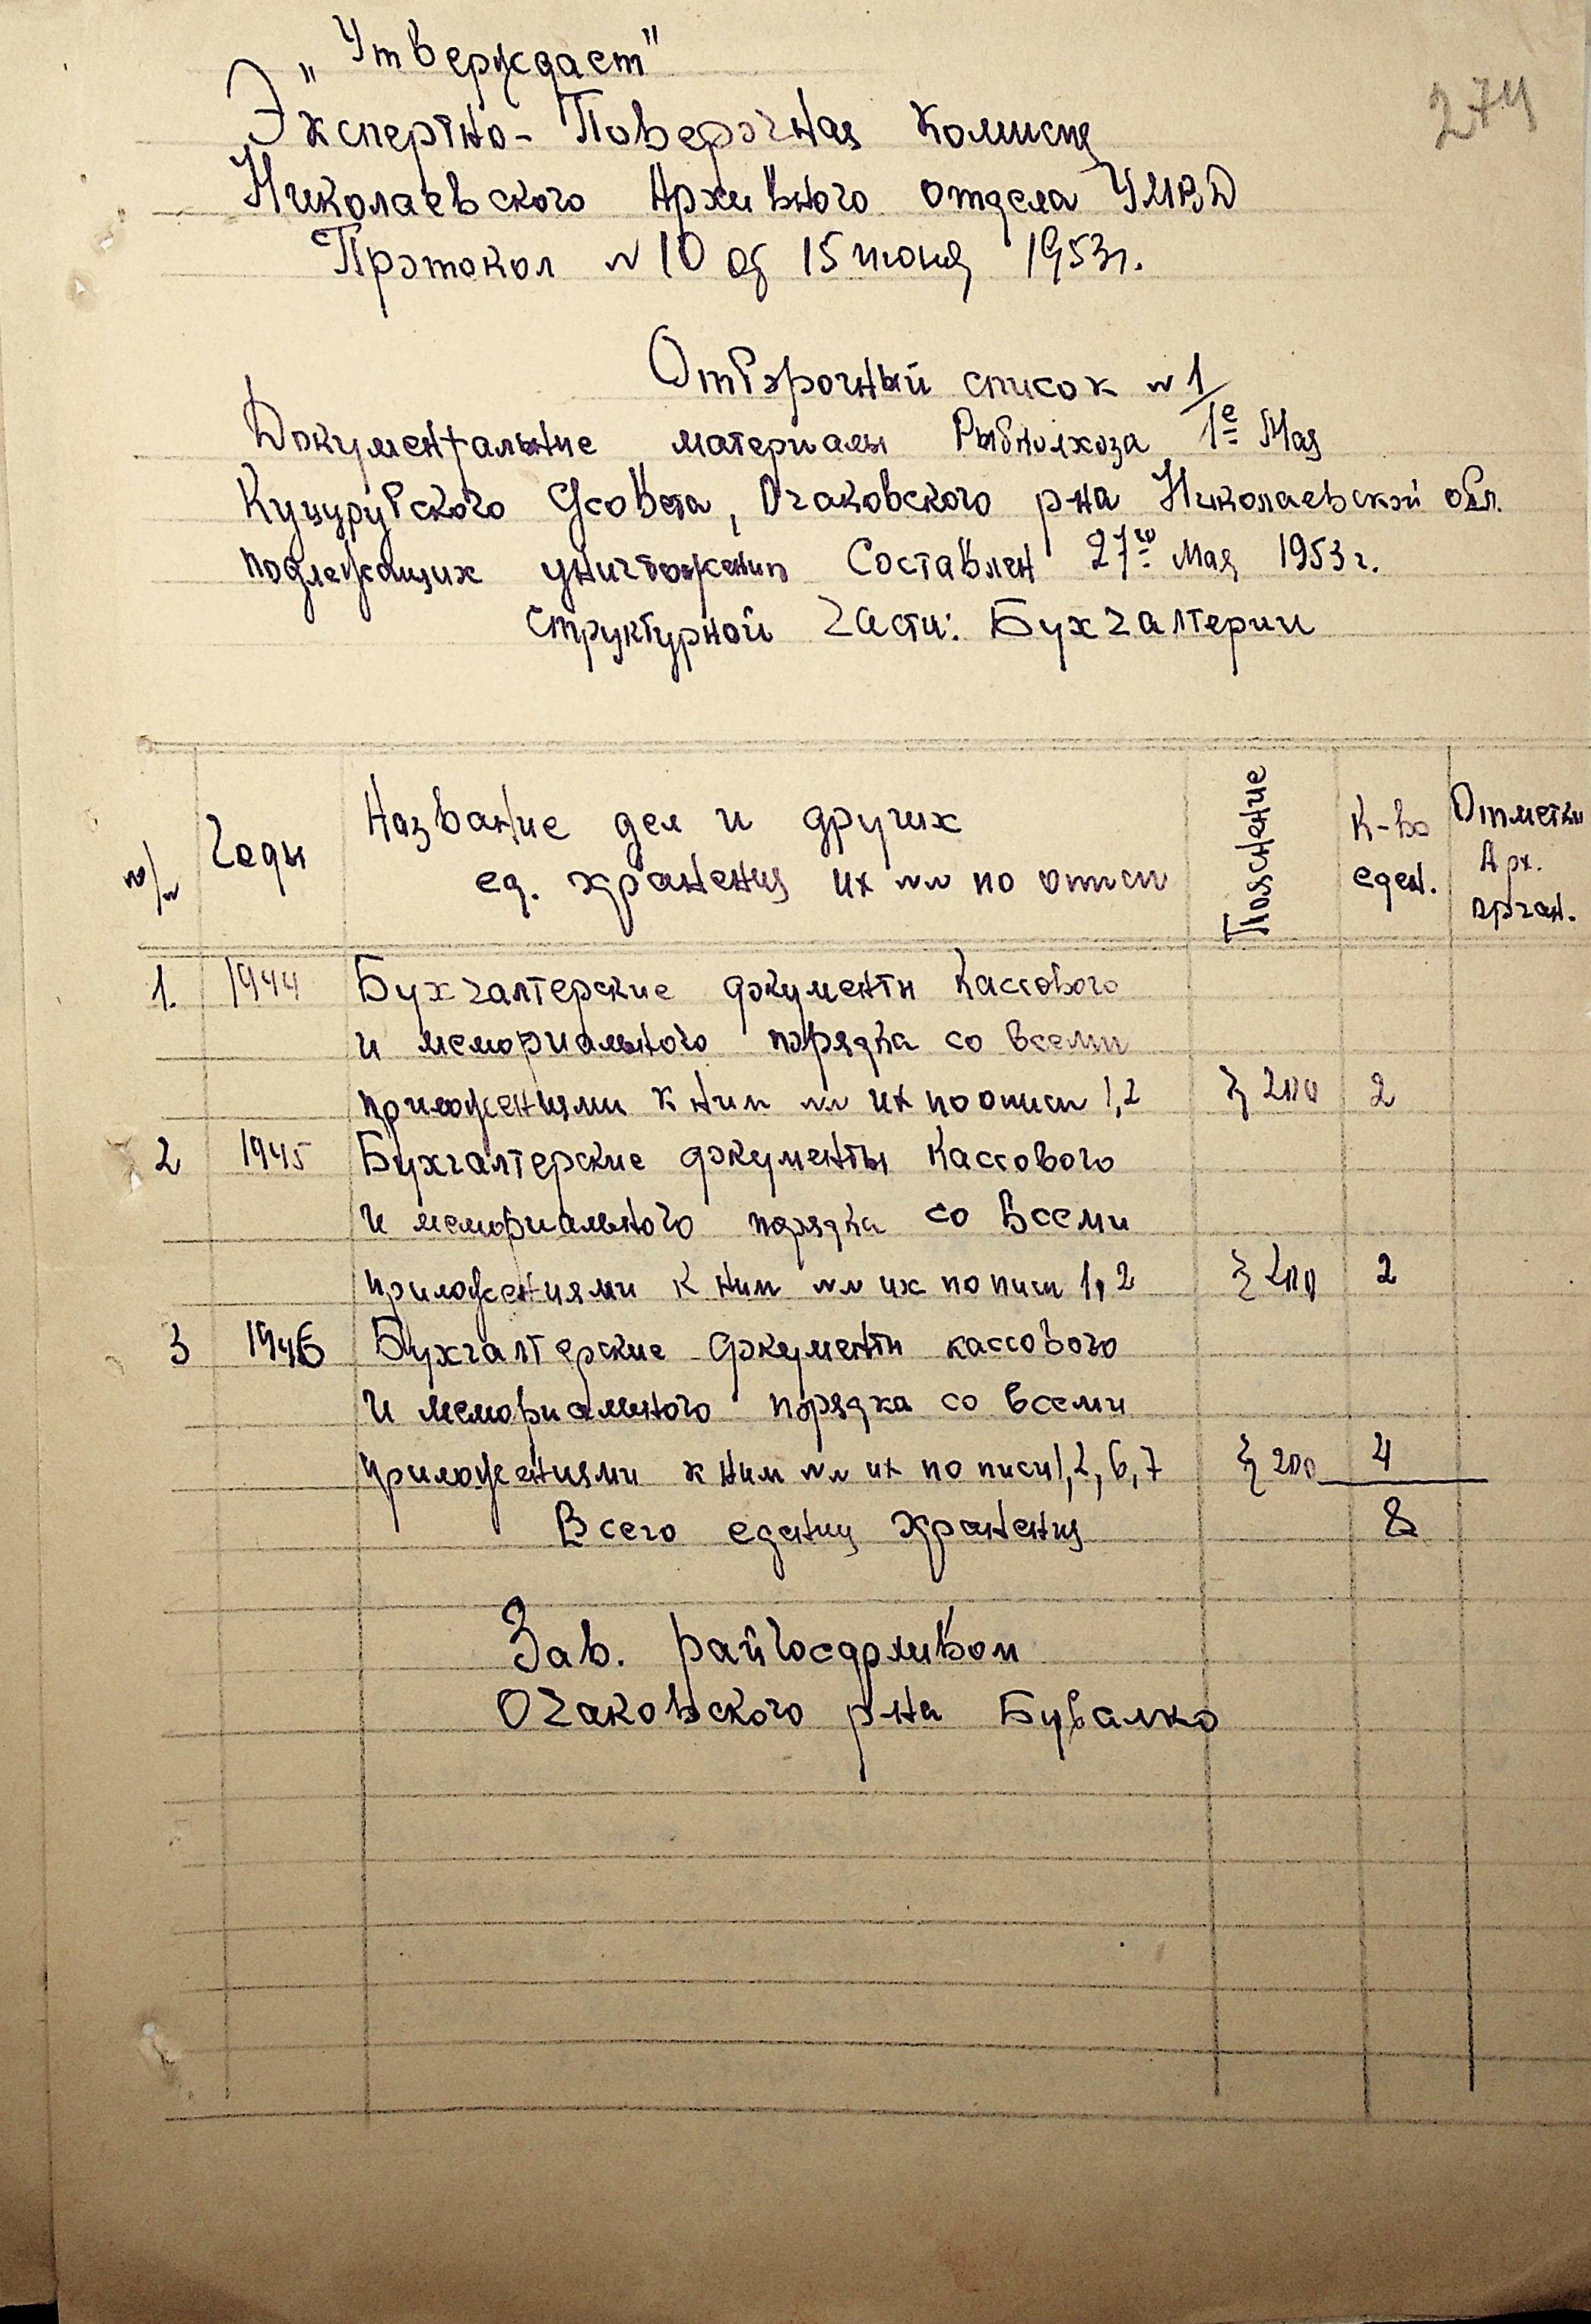 „Утверждает"
274
Экспертно-Поверочная комисия
Николаевского Архивного отдела УМВД
Протокол №10 от 15 июня 1953г.
Отборочный список №1
Документальные материалы Рыбколхоза 1е Мая
Куцурубского С/совета, Очаковского р-на Николаевской обл.
подлежащих уничтожению Составлен 27го Мая 1953г.
Структурной части: Бухгалтерии
№/№ Годы Название дел и других ед. хранения их №№ по описи Пояснение К-во еден. Отметки Арх. орган.
1. 1944 Бухгалтерские документы Кассового
и мемориального порядка со всеми
приложениями к ним №№ их по описи 1,2 } 200 2
2 1945 Бухгалтерские документы Кассового
и мемориального порядка со Всеми
приложениями к ним №№ их по писи 1,2 } 200 2
3 1946 Бухгалтерские документы кассового
и мемориального порядка со всеми
приложениями к ним №№ их по писи 1,2,6,7 } 200 4
Всего едениц хранения 8
Зав. райгосархивом
Очаковского р-на Бувалко